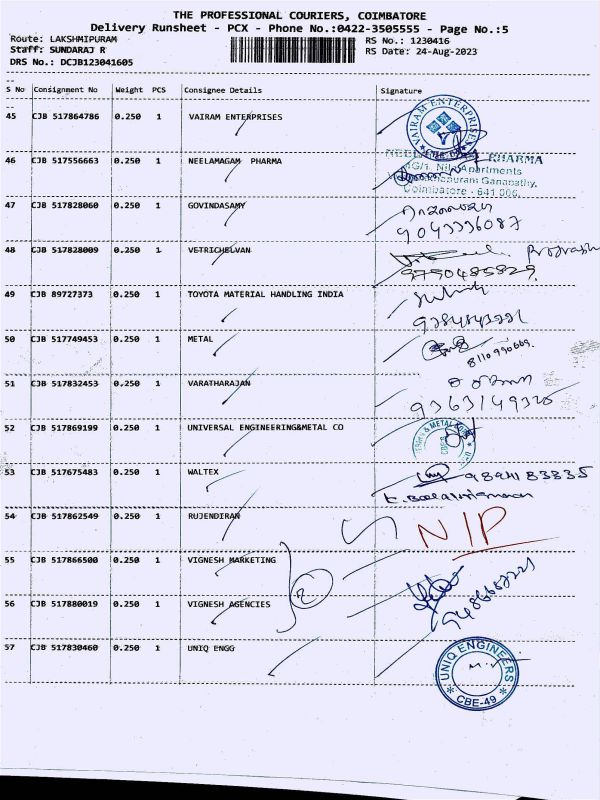 THE PROFESSIONAL COURIERS, COIMBATORE
Delivery Runsheet - PCX - Phone No.:0422-3505555 - Page No.:5
Route: LAKSHMIPURAM RS No.: 1230416
Staff: SUNDARAJ R RS Date: 24-Aug-2023
DRS No.: DCJB123041605
S No Consignment No Weight PCS Consignee Details Signature
45 CJB 517864786 0.250 1 VAIRAM ENTERPRISES
VAIRAM ENTERPRISES
46 CJB 517556663 0.250 1 NEELAMAGAM PHARMA
PHARMA
Apartments
Ganapathy,
Coimbatore - 641 006.
47 CJB 517828060 0.250 1 GOVINDASAMY
9043336087
48 CJB 517828009 0.250 1 VETRICHELVAN
9750485829
49 CJB 89727373 0.250 1 TOYOTA MATERIAL HANDLING INDIA
50 CJB 517749453 0.250 1 METAL
8110990669.
51 CJB 517832453 0.250 1 VARATHARAJAN
9363149326
52 CJB 517869199 0.250 1 UNIVERSAL ENGINEERING&METAL CO
53 CJB 517675483 0.250 1 WALTEX
9894183835
54 CJB 517862549 0.250 1 RUJENDIRAN
N/P
55 CJB 517866500 0.250 1 VIGNESH MARKETING
2
56 CJB 517880019 0.250 1 VIGNESH AGENCIES
57 CJB 517830460 0.250 1 UNIQ ENGG
UNIQ ENGINEERS
CBE-49